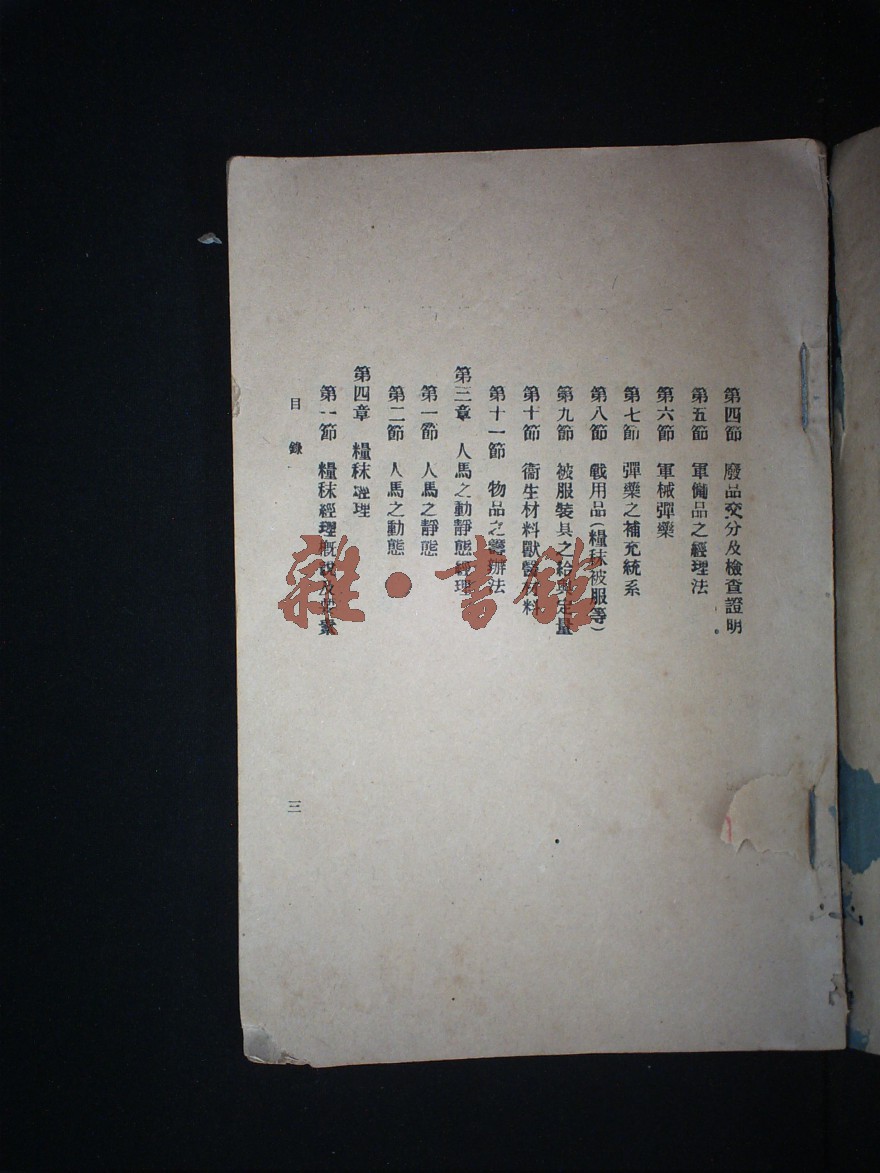 第四節 廢品交分及檢查證明
第五節 軍備品之經理法
第六節 軍械彈藥
第七節 彈藥之補充統系
第八節 戰用品(糧秣被服等)
第九節 被服裝具之給與定量
第十節 衞生材料獸醫材料
第十一節 物品之籌辦法
第三章 人馬之動靜態經理
第一節 人馬之靜態
第二節 人馬之動態
第四章 糧秣經理
第一節 糧秣經理概說及要素
目錄
三
雜·書館